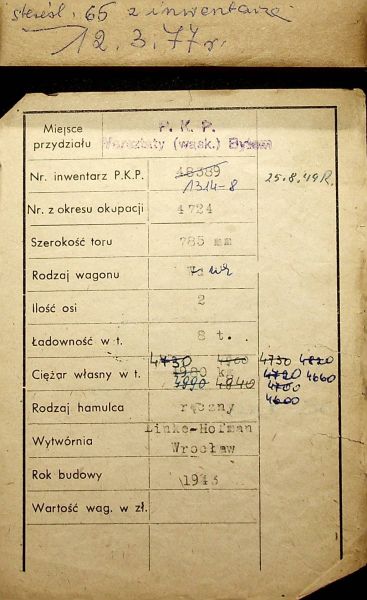 skreśl. 65 z inwentarza
12.3.77 r.
Miejsce przydziału P. K. P.
Warsztaty (wąsk.) Bytom
Nr. inwentarz P.K.P. 48389
1314-8 25.8.49 R.
Nr. z okresu okupacji 4724
Szerokość toru 785 mm
Rodzaj wagonu Wz
Ilość osi 2
Ładowność w t. 8 t.
4730 4800 4750 4820
Ciężar własny w t. 4980 kg 4720 4660
4890 4840 4700
4600
Rodzaj hamulca ręczny
Wytwórnia Linke-Hofman
Wrocław
Rok budowy 1943
Wartość wag. w zł.